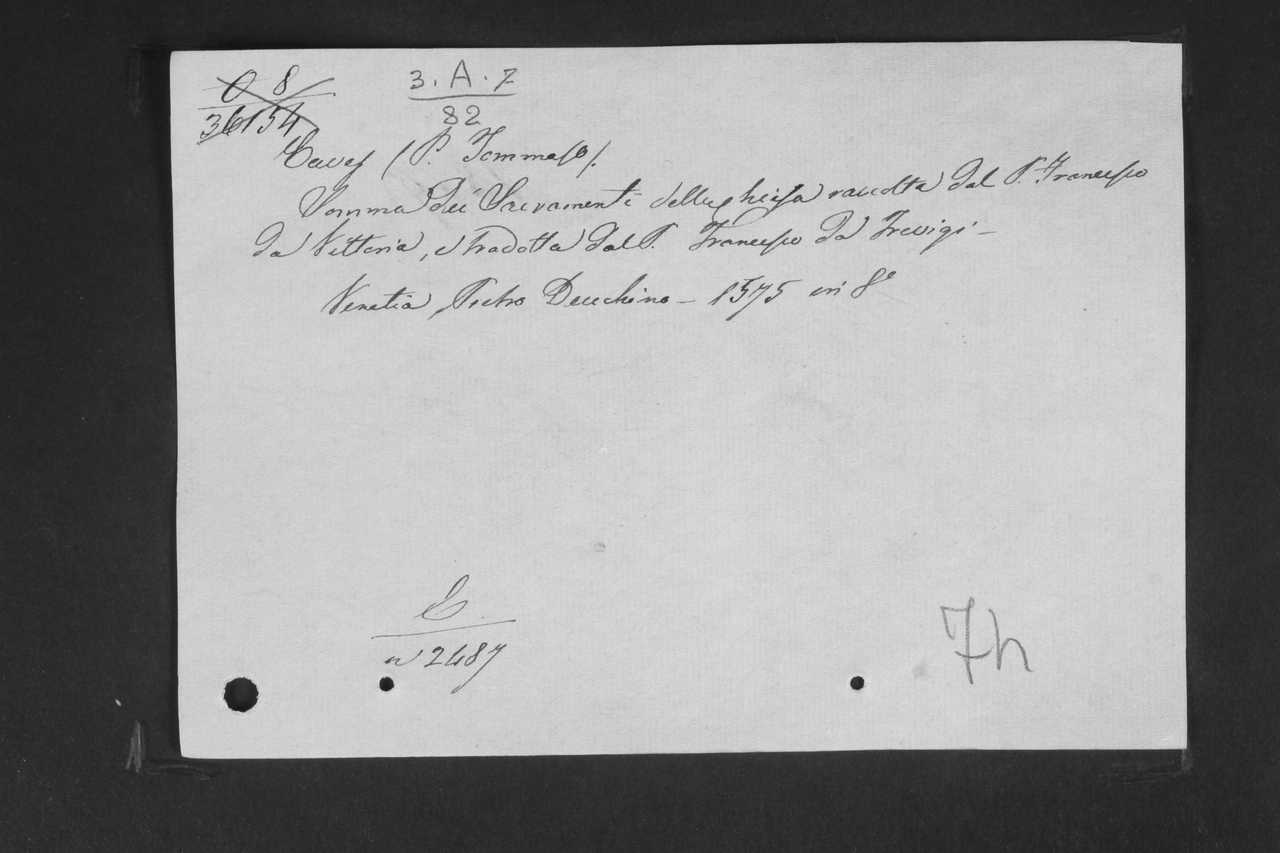 O 8
36154
3.A.7
82
Caves (P. Tommaso).
Somma dei Sacramenti della chiesa raccolta dal P. Francesco
da Vittoria, e tradotta dal P. Francesco da Trevigi –
Venetia, Pietro Deuchino – 1575 in 8º
C.
n 2487
7h